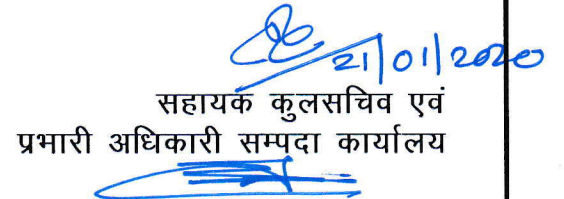 21/01/2020
सहायक कुलसचिव एवं
प्रभारी अधिकारी सम्पदा कार्यालय